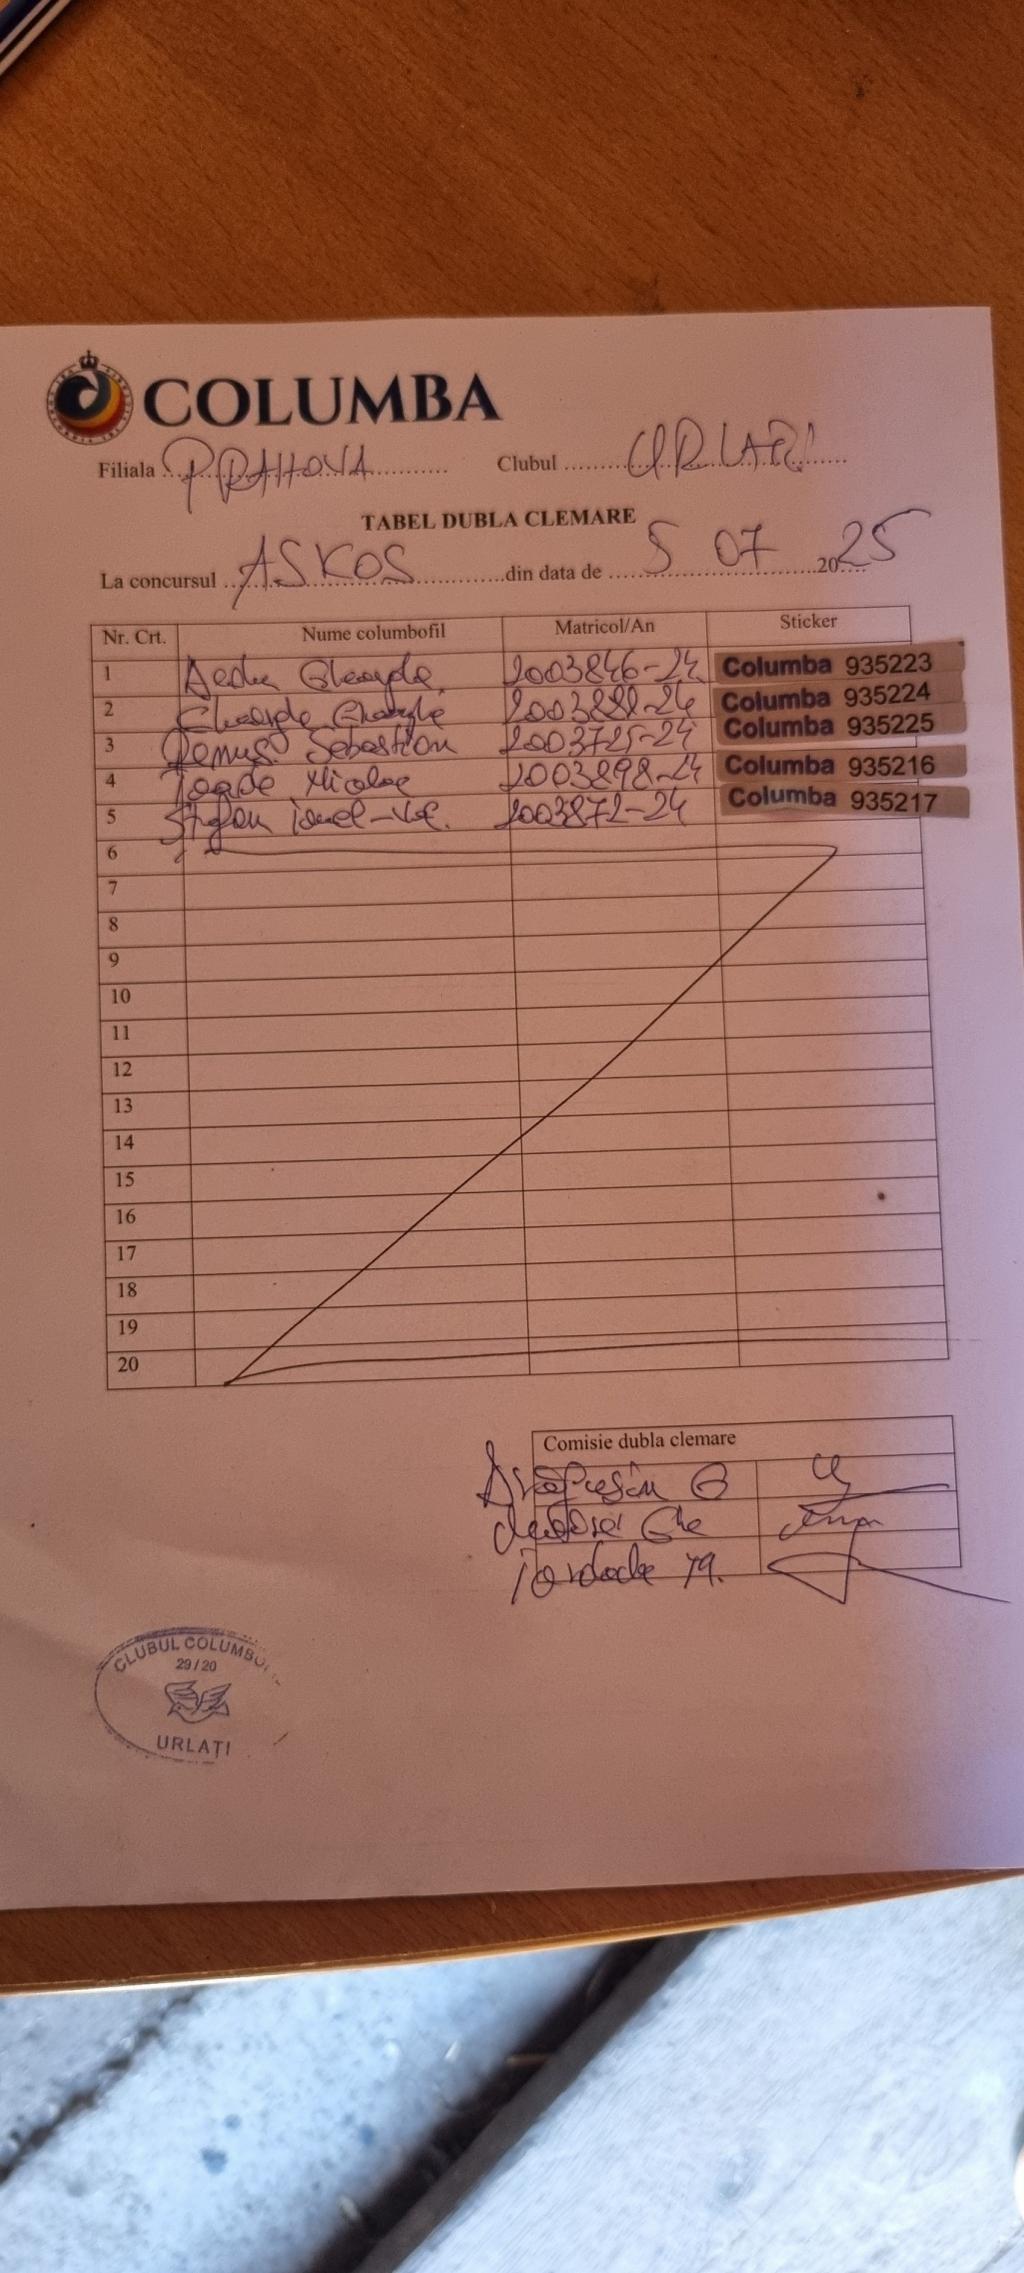 COLUMBA
Filiala PRAHOVA Clubul URLATI
TABEL DUBLA CLEMARE
La concursul ASKOS din data de 5 07 2025
Nr. Crt. Nume columbofil Matricol/An Sticker
1 Gheorghe 2003846-24 Columba 935223
2 Gheorghe Gheorghe Columba 935224
3 Remus Sebastian 2003725-24 Columba 935225
4 Nicolae 2003898-24 Columba 935216
5 Stefan Ionel-Val. 2003872-24 Columba 935217
6
7
8
9
10
11
12
13
14
15
16
17
18
19
20
Comisie dubla clemare
Ghe
Iordache
CLUBUL COLUMBO
29/20
URLAȚI